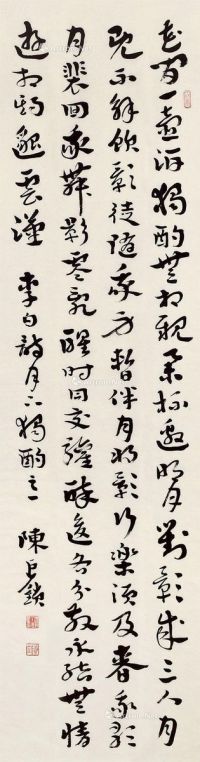 花間一壺酒獨酌無相親舉杯邀明月對影成三人月
既不解飲影徒隨我身暫伴月將影行樂須及春我歌
月裴回我舞影零亂醒時同交歡醉後各分散永結無情
遊相期邈雲漢 李白詩月下獨酌之一 陳巨鎖